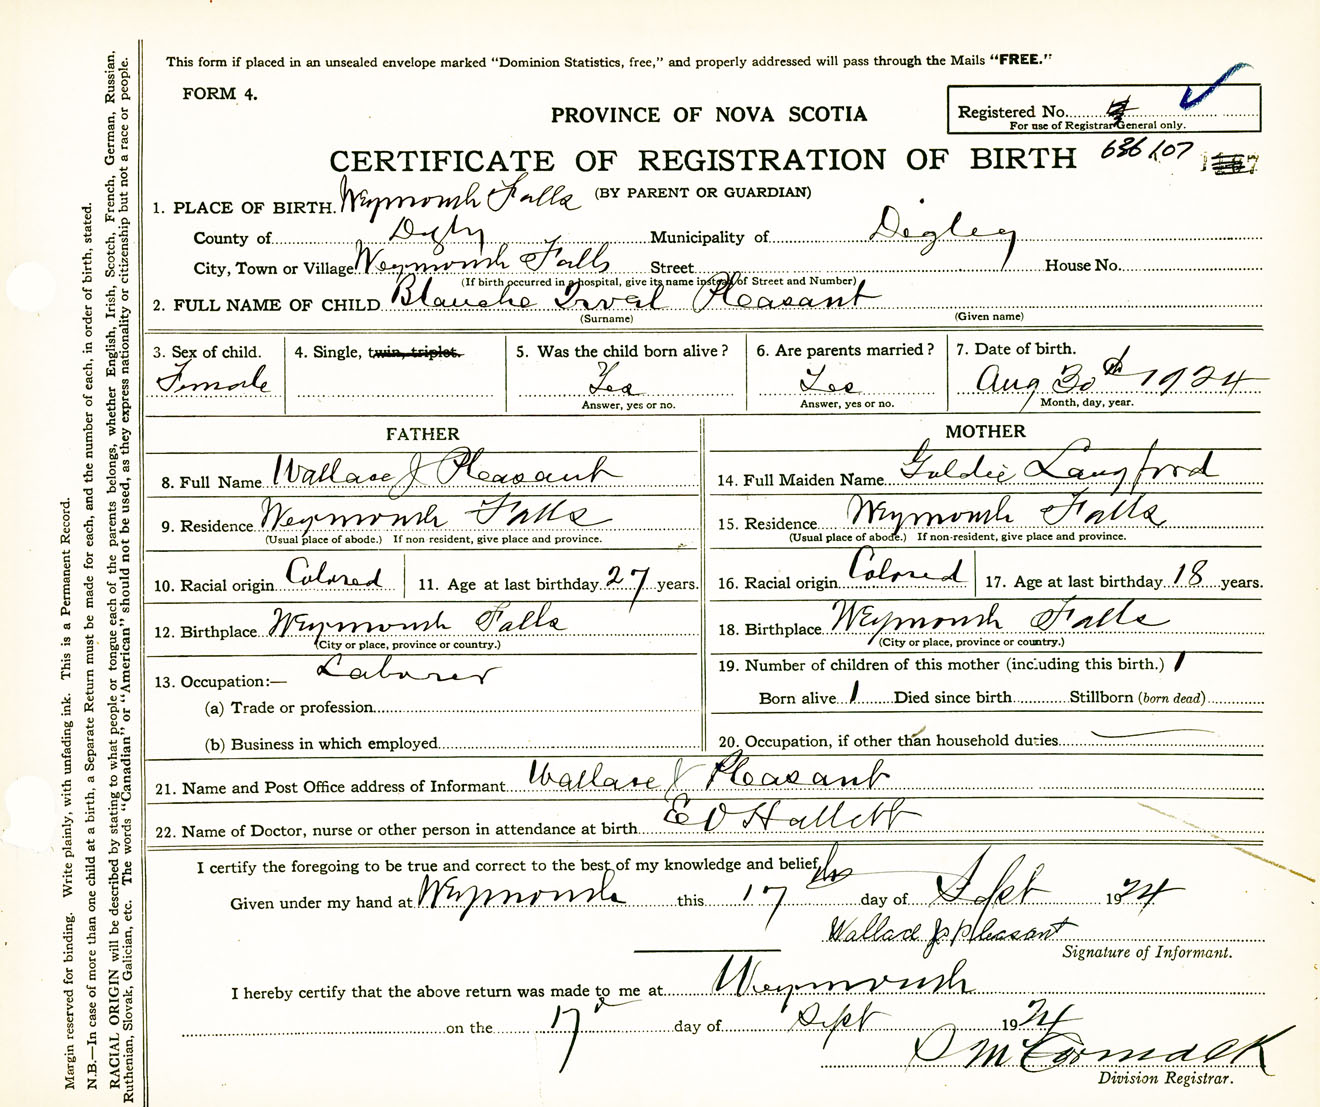 This form if placed in an unsealed envelope marked "Dominion Statistics, free," and properly addressed will pass through the Mails "FREE."
FORM 4.
PROVINCE OF NOVA SCOTIA
Registered No.
For use of Registrar General only.
CERTIFICATE OF REGISTRATION OF BIRTH
636107
(BY PARENT OR GUARDIAN)
1. PLACE OF BIRTH. Weymouth Falls
County of Digby Municipality of Digley
City, Town or Village Weymouth Falls Street House No.
(If birth occurred in a hospital, give its name instead of Street and Number)
2. FULL NAME OF CHILD Blanche Pleasant
(Surname) (Given name)
3. Sex of child. Female
4. Single, twin, triplet.
5. Was the child born alive? Yes
Answer, yes or no.
6. Are parents married? Yes
Answer, yes or no.
7. Date of birth. Aug 30th 1924
Month, day, year.
FATHER
8. Full Name Wallace J Pleasant
9. Residence Weymouth Falls
(Usual place of abode.) If non resident, give place and province.
10. Racial origin Colored 11. Age at last birthday 27 years.
12. Birthplace Weymouth Falls
(City or place, province or country.)
13. Occupation:— Laborer
(a) Trade or profession
(b) Business in which employed
MOTHER
14. Full Maiden Name Goldie Langford
15. Residence Weymouth Falls
(Usual place of abode.) If non-resident, give place and province.
16. Racial origin Colored 17. Age at last birthday 18 years.
18. Birthplace Weymouth Falls
(City or place, province or country.)
19. Number of children of this mother (including this birth.) 1
Born alive 1 Died since birth Stillborn (born dead)
20. Occupation, if other than household duties
21. Name and Post Office address of Informant Wallace J Pleasant
22. Name of Doctor, nurse or other person in attendance at birth E D Hallett
I certify the foregoing to be true and correct to the best of my knowledge and belief
Given under my hand at Weymouth this 17 day of Sept 1924
Wallace J Pleasant
Signature of Informant.
I hereby certify that the above return was made to me at Weymouth
on the 17 day of Sept 1924
D McCormack
Division Registrar.
Margin reserved for binding. Write plainly, with unfading ink. This is a Permanent Record.
N.B.—In case of more than one child at a birth, a Separate Return must be made for each, and the number of each, in order of birth, stated.
RACIAL ORIGIN will be described by stating to what people or tongue each of the parents belongs, whether English, Irish, Scotch, French, German, Russian,
Ruthenian, Slovak, Galician, etc. The words "Canadian" or "American" should not be used, as they express nationality or citizenship but not a race or people.